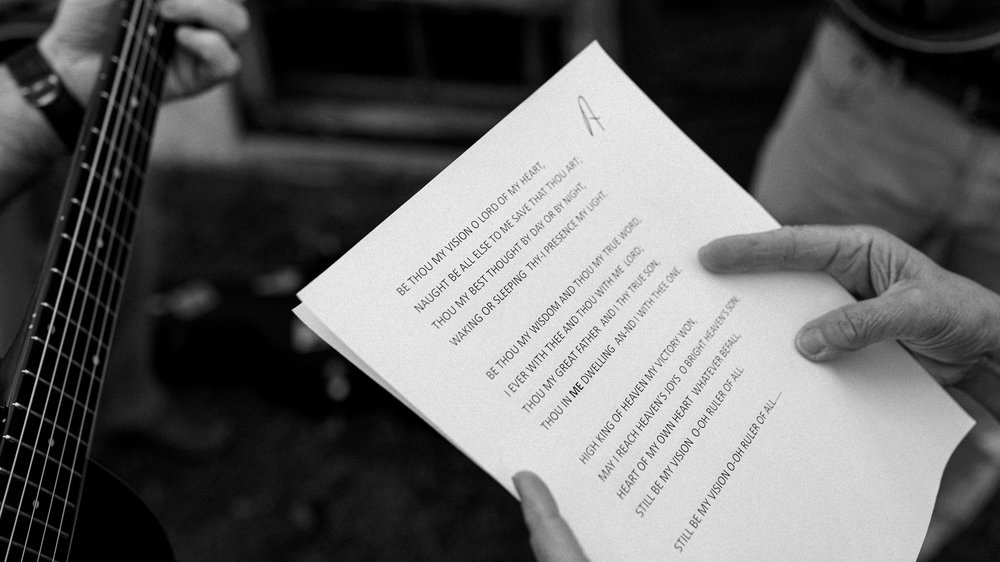 A
BE THOU MY VISION O LORD OF MY HEART,
NAUGHT BE ALL ELSE TO ME SAVE THAT THOU ART;
THOU MY BEST THOUGHT BY DAY OR BY NIGHT,
WAKING OR SLEEPING THY-I PRESENCE MY LIGHT.
BE THOU MY WISDOM AND THOU MY TRUE WORD,
I EVER WITH THEE AND THOU WITH ME LORD;
THOU MY GREAT FATHER AND I THY TRUE SON,
THOU IN ME DWELLING AN-ND I WITH THEE ONE.
HIGH KING OF HEAVEN MY VICTORY WON,
MAY I REACH HEAVEN'S JOYS O BRIGHT HEAVEN'S SON
HEART OF MY OWN HEART WHATEVER BEFALL.
STILL BE MY VISION O-OH RULER OF ALL
STILL BE MY VISION O-OH RULER OF ALL....